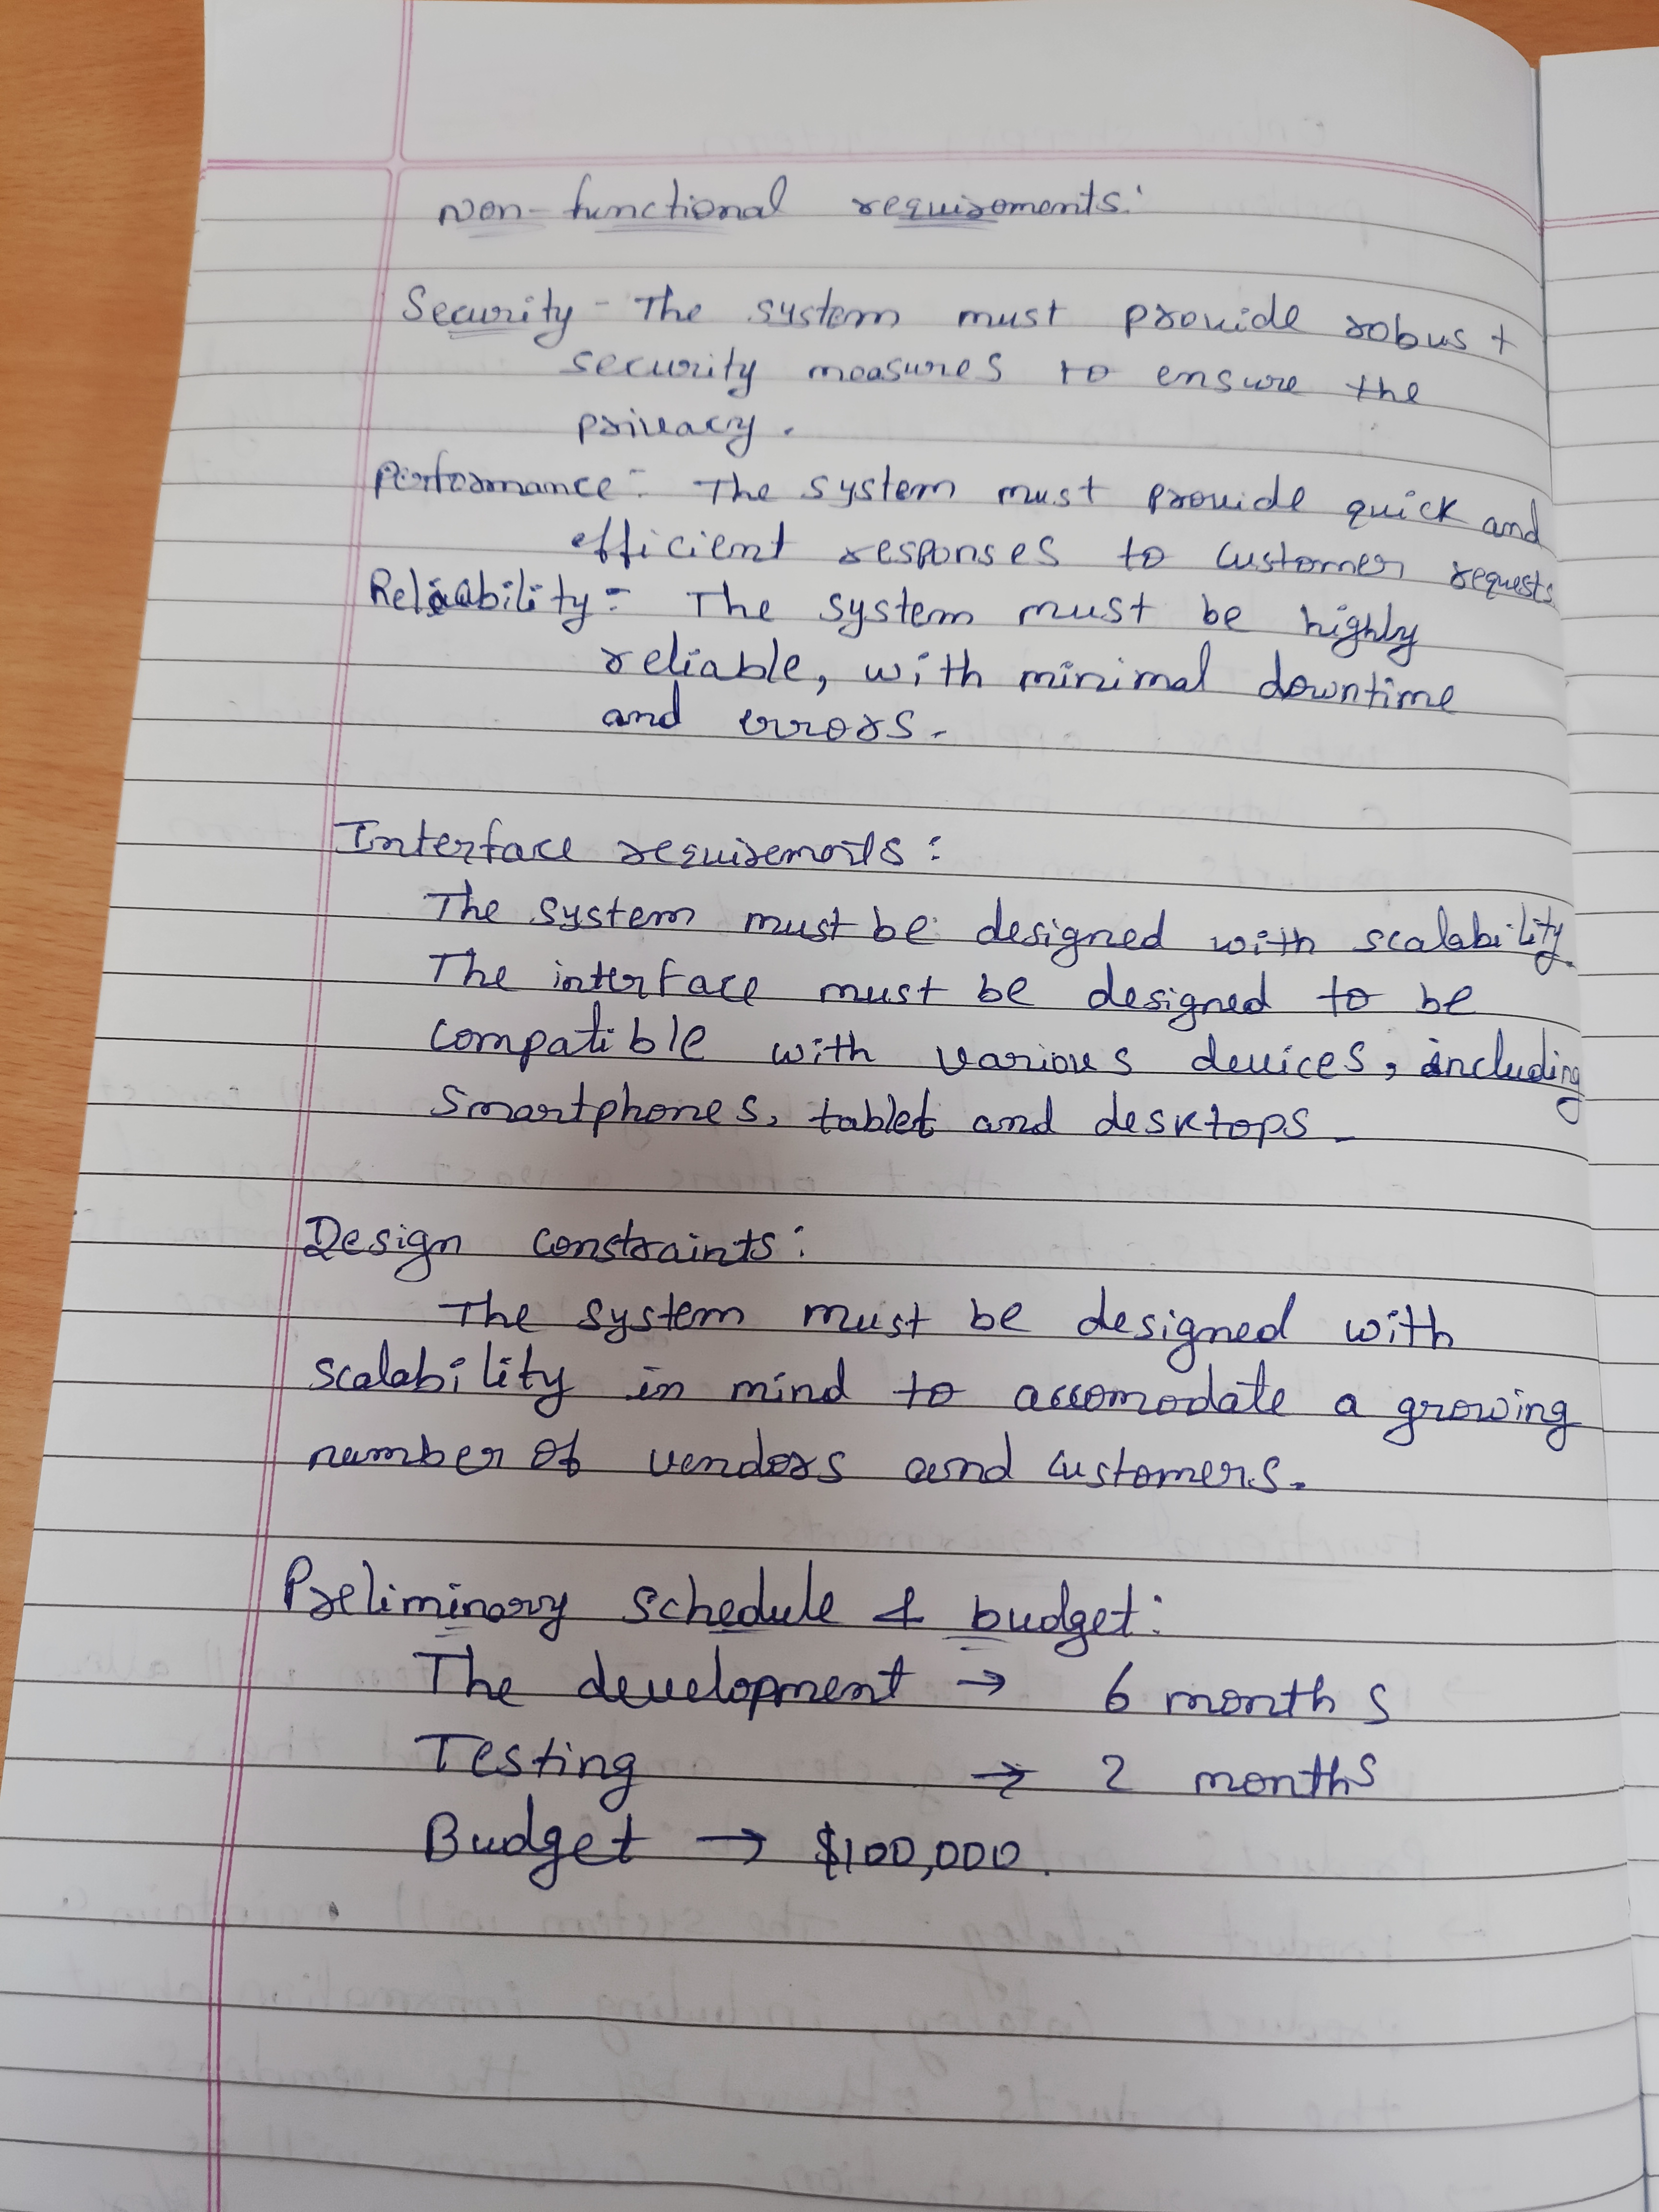 Non-functional requirements:
Security - The system must provide robust
security measures to ensure the
privacy.
Performance:- The system must provide quick and
efficient responses to customer requests
Reliability:- The system must be highly
reliable, with minimal downtime
and errors.
Interface requirements:
The system must be designed with scalability.
The interface must be designed to be
compatible with various devices, including
Smartphones, tablet and desktops.
Design constraints:
The system must be designed with
scalability in mind to accomodate a growing
number of vendors and customers.
Preliminary schedule & budget:
The development → 6 months
Testing → 2 months
Budget → $100,000.